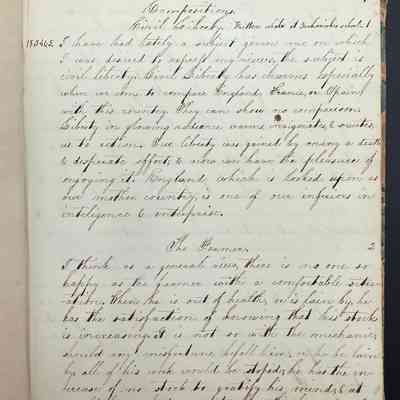 Compositions.
Civil Liberty. Written while at school
I have had lately a subject given me on which
I was desired to express my views, the subject is
civil liberty. Civil Liberty has charms especially
when we come to compare England, France, or Spain
with this country. They can show no comparison.
Liberty in glowing radience warms invigorates, & excites
us to action. Our liberty was gained by many a death
& desperate effort, & now we have the pleasure of
enjoying it. England which is looked upon as
our mother country, is one of our inferiors in
inteligence & enterprise.
The Farmer. 2
I think as a general view, there is no one so
happy as the farmer with a comfortable situ-
ation. When he is out of health, or is
has the satisfaction of knowing that his stock
is increasing. It is not so with the mechanic,
should any misfortune befall him, or he be laim
by all of his work would be stoped, he has the in-
crease of no stock to gratify his mind, & at